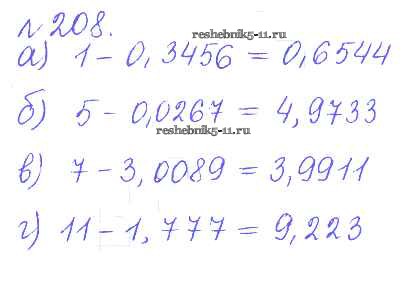 №208.
reshebnik5-11.ru
а) 1 - 0,3456 = 0,6544
б) 5 - 0,0267 = 4,9733
reshebnik5-11.ru
в) 7 - 3,0089 = 3,9911
г) 11 - 1,777 = 9,223